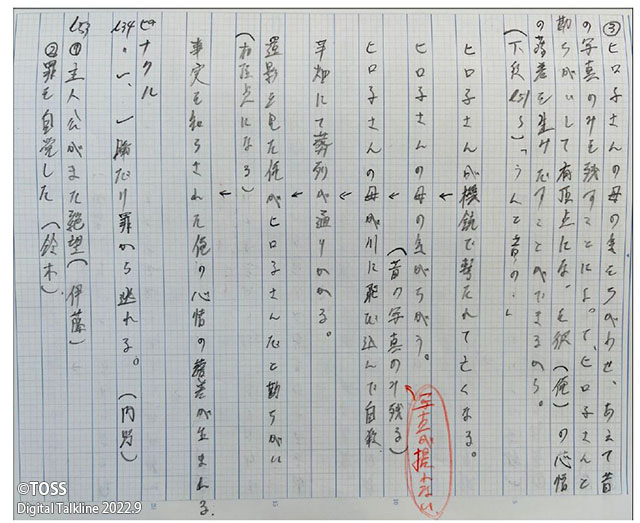 ③ヒロ子さんの母の気をちがわせ、あえて昔
の写真のみを残すことによって、ヒロ子さんと
勘ちがいして有頂点になった彼(俺)の心情
の落差を生みだすことができるから。
(下久 l51〜)「うんと昔の…」
ヒロ子さんが機銃で撃たれて亡くなる。
↓
ヒロ子さんの母の気がちがう。
(昔の写真のみ残る)
写真が撮れない
↓
ヒロ子さんの母が川に飛び込んで自殺
↓
芋畑にて葬列が通りかかる。
↓
遺影を見た俺がヒロ子さんだと勘ちがい
(有頂点になる)
↓
事実を知らされた俺の心情の落差が生まれる。
ピナクル
l34・い、一瞬だけ罪から逃れる。(内男)
l53 ①主人公がまた絶望(伊藤)
②罪を自覚した(鈴木)
©TOSS
Digital Talkline 2022.9